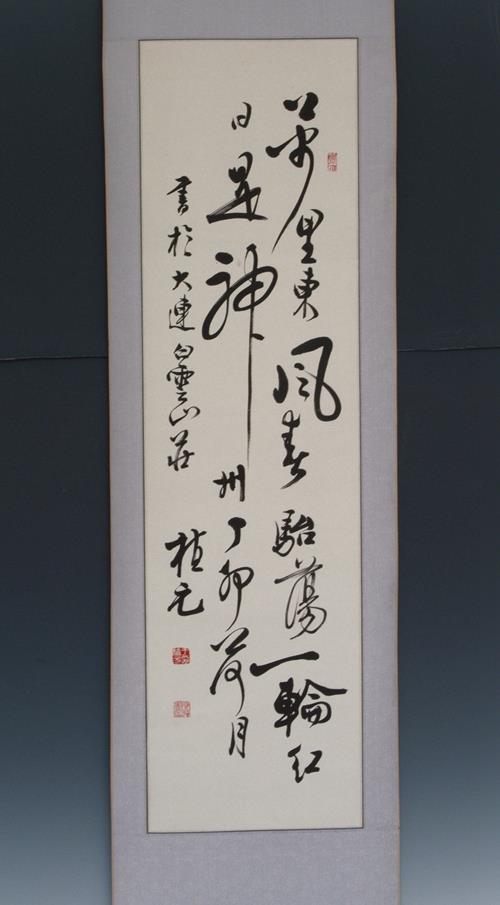 萬里東風春駘蕩一輪紅
日是神州丁卯荷月
書於大連白雲山莊
植元